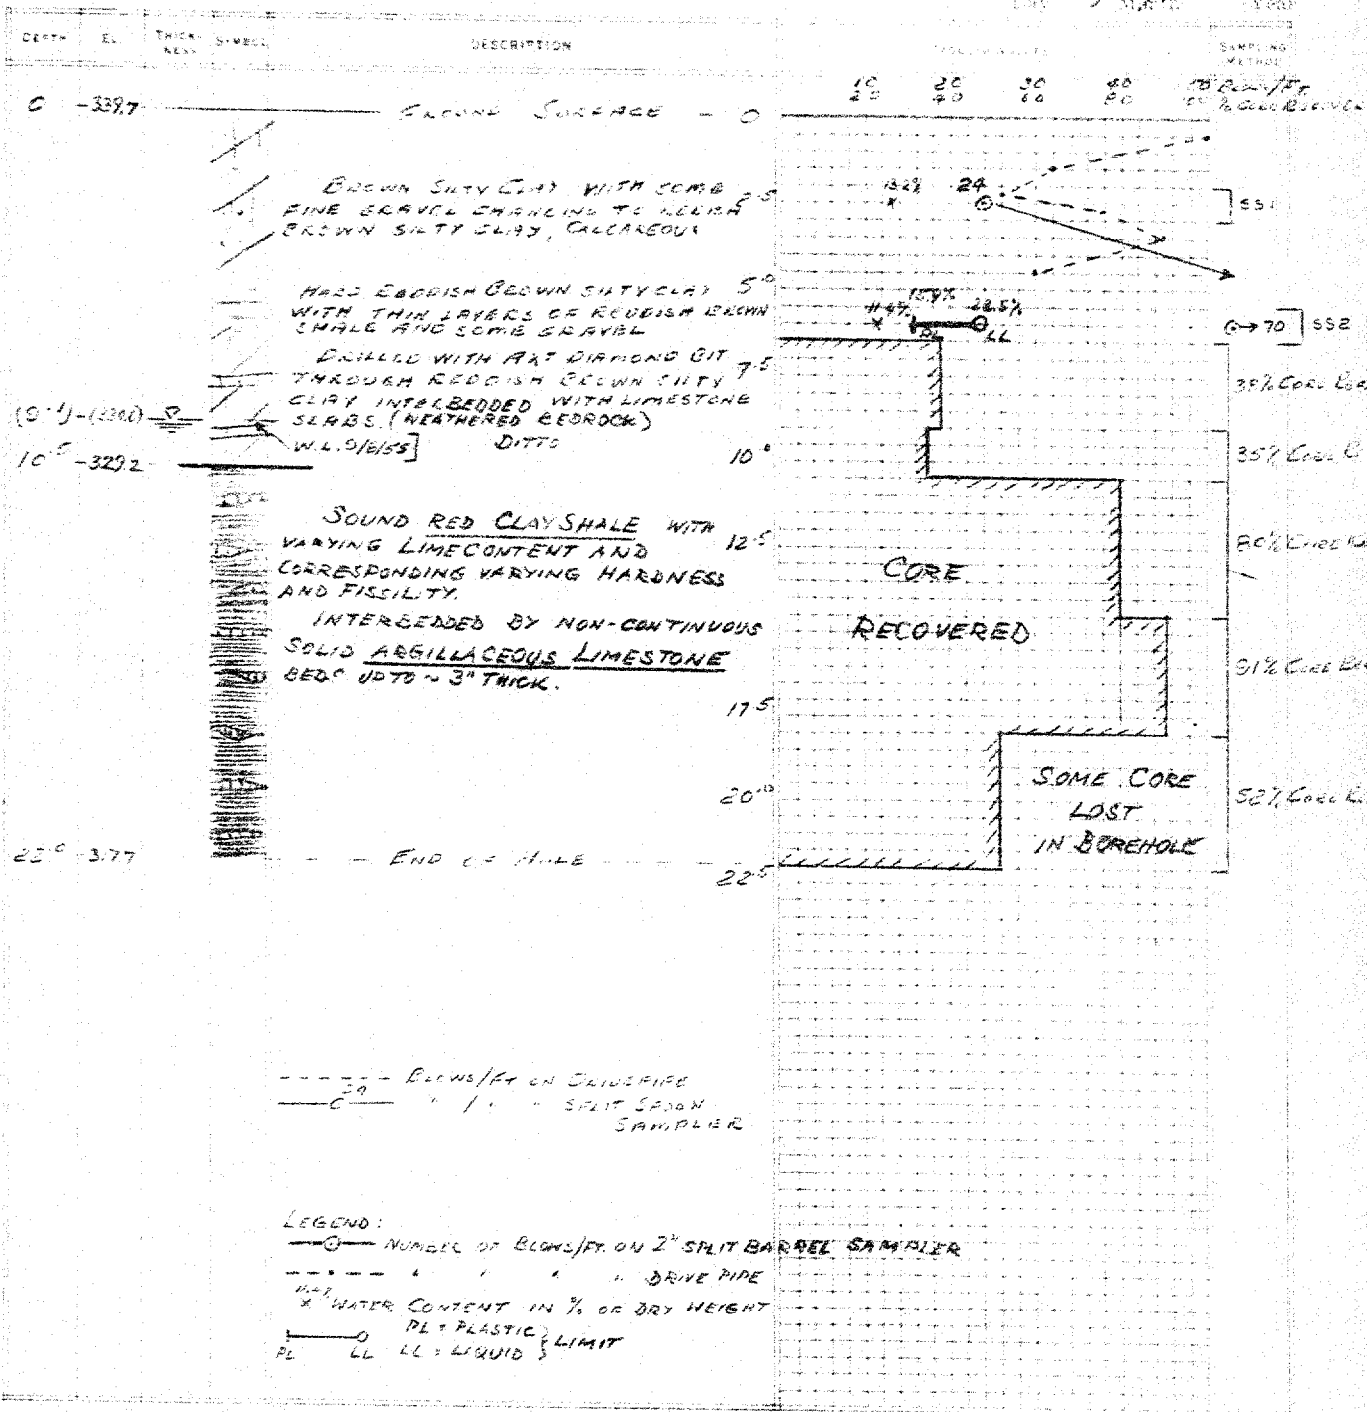 DEPTH EL. THICK-NESS SYMBOL DESCRIPTION SAMPLING METHOD
10 20 30 40 Blows/Ft
20 40 60 80
0 -339.7 GROUND SURFACE - 0
BROWN SILTY CLAY WITH SOME 2.5
FINE GRAVEL CHANGING TO
BROWN SILTY CLAY, CALCAREOUS
24
SS1
HARD REDDISH BROWN SILTY CLAY 5.0
WITH THIN LAYERS OF REDDISH BROWN
SHALE AND SOME GRAVEL
15.9%
PL LL
70 SS2
DRILLED WITH AXT DIAMOND BIT
THROUGH REDDISH BROWN SILTY 7.5
CLAY INTERBEDDED WITH LIMESTONE
SLABS. (WEATHERED BEDROCK)
W.L. 9/8/55] DITTO 10.0
10.5 -329.2
35% CORE
SOUND RED CLAY SHALE WITH 12.5
VARYING LIME CONTENT AND
CORRESPONDING VARYING HARDNESS
AND FISSILITY.
80% CORE
CORE
INTERBEDDED BY NON-CONTINUOUS
RECOVERED
SOLID ARGILLACEOUS LIMESTONE
BEDS UP TO ~ 3" THICK.
91% CORE
17.5
SOME CORE
20.0
LOST
52% CORE
IN BOREHOLE
END OF HOLE
22.5
BLOWS/FT ON DRIVEPIPE
" / " " SPLIT SPOON
SAMPLER
LEGEND:
NUMBER OF BLOWS/FT. ON 2" SPLIT BARREL SAMPLER
" " " " DRIVE PIPE
x WATER CONTENT IN % OF DRY WEIGHT
PL = PLASTIC } LIMIT
PL LL LL = LIQUID